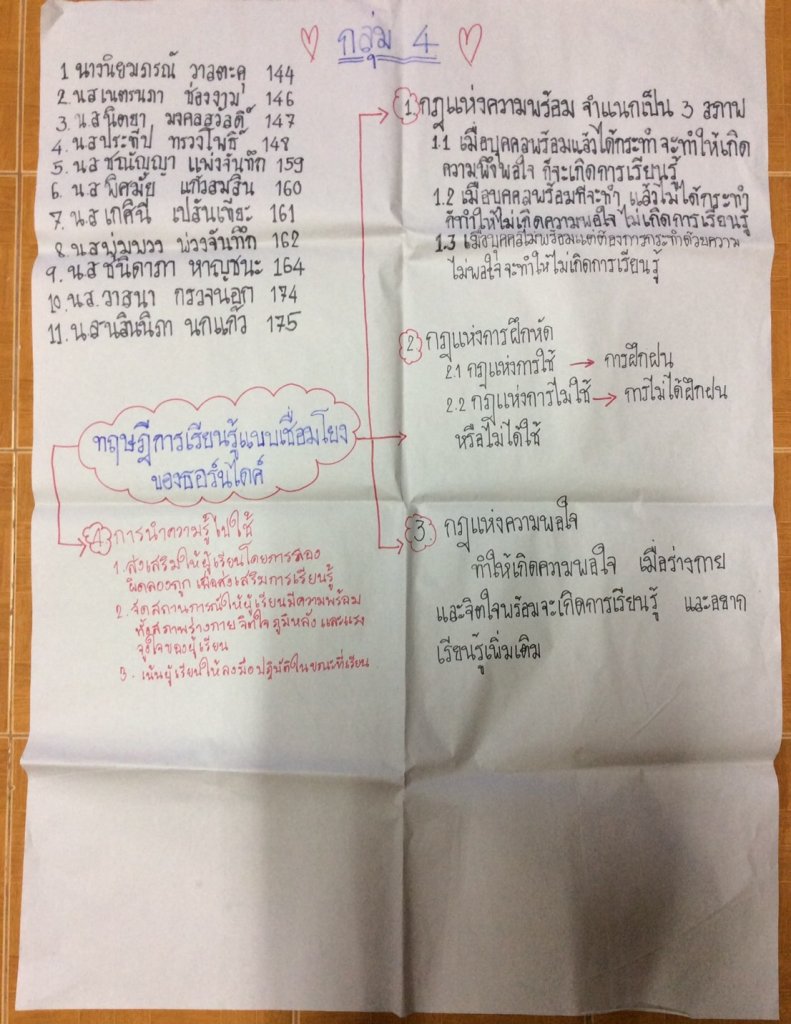 กลุ่ม 4
1 นางนิยมภรณ์ วาลตะคุ 144
2. น.ส เนตรนภา ช่องงาม 146
3. น.ส นิตยา มงคลสวัสดิ์ 147
4. น.ส ประทีป ทรวงโพธิ์ 148
5. น.ส ชณัญญา แพ่งจันทึก 159
6. น.ส พิศมัย แก้วสมสิน 160
7. น.ส เกศินี 161
8. น.ส พุ่มพวง พ่วงจันทึก 162
9. น.ส ชนิดาภา หาญชนะ 164
10. น.ส. วาสนา กรวจนอก 174
11. น.ส นลินนิภา นกแก้ว 175
ทฤษฎีการเรียนรู้แบบเชื่อมโยง
ของธอร์นไดค์
1 กฎแห่งความพร้อม จำแนกเป็น 3 สภาพ
1.1 เมื่อบุคคลพร้อมแล้วได้กระทำ จะทำให้เกิด
ความพึงพอใจ ก็จะเกิดการเรียนรู้
1.2 เมื่อบุคคลพร้อมที่จะทำ แล้วไม่ได้กระทำ
ก็ทำให้ไม่เกิดความพอใจ ไม่เกิดการเรียนรู้
1.3 เมื่อบุคคลไม่พร้อมแต่ต้องการกระทำด้วยความ
ไม่พอใจ จะทำให้ไม่เกิดการเรียนรู้
2 กฎแห่งการฝึกหัด
2.1 กฎแห่งการใช้ → การฝึกฝน
2.2 กฎแห่งการไม่ใช้ → การไม่ได้ฝึกฝน
หรือไม่ได้ใช้
3. กฎแห่งความพอใจ
ทำให้เกิดความพอใจ เมื่อร่างกาย
และจิตใจพร้อมจะเกิดการเรียนรู้ และอยาก
เรียนรู้เพิ่มเติม
4 การนำความรู้ไปใช้
1. ส่งเสริมให้ผู้เรียนโดยการลอง
ผิดลองถูก เพื่อส่งเสริมการเรียนรู้
2. จัดสถานการณ์ให้ผู้เรียนมีความพร้อม
ทั้งสภาพร่างกาย จิตใจ ภูมิหลัง และแรง
จูงใจของผู้เรียน
3. เน้นผู้เรียนให้ลงมือปฏิบัติในขณะที่เรียน